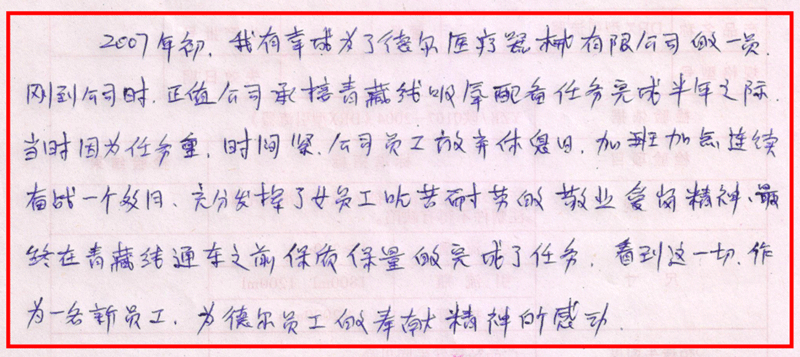 2007年初，我有幸成为了德尔医疗器械有限公司的一员，
刚到公司时，正值公司承接青藏线吸氧配备任务完成半年之际，
当时因为任务重，时间紧，公司员工放弃休息日，加班加点连续
奋战一个多月、充分发挥了女员工吃苦耐劳的敬业爱岗精神、最
终在青藏线通车之前保质保量的完成了任务，看到这一切，作
为一名新员工，为德尔员工的奉献精神所感动．